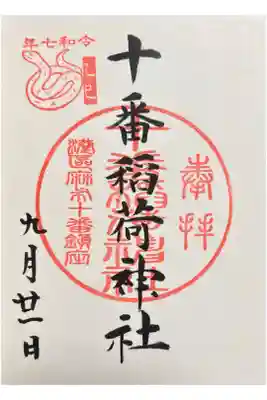 令和七年
乙巳
奉拝
十番稲荷神社
港区麻布十番鎮座
九月廿一日